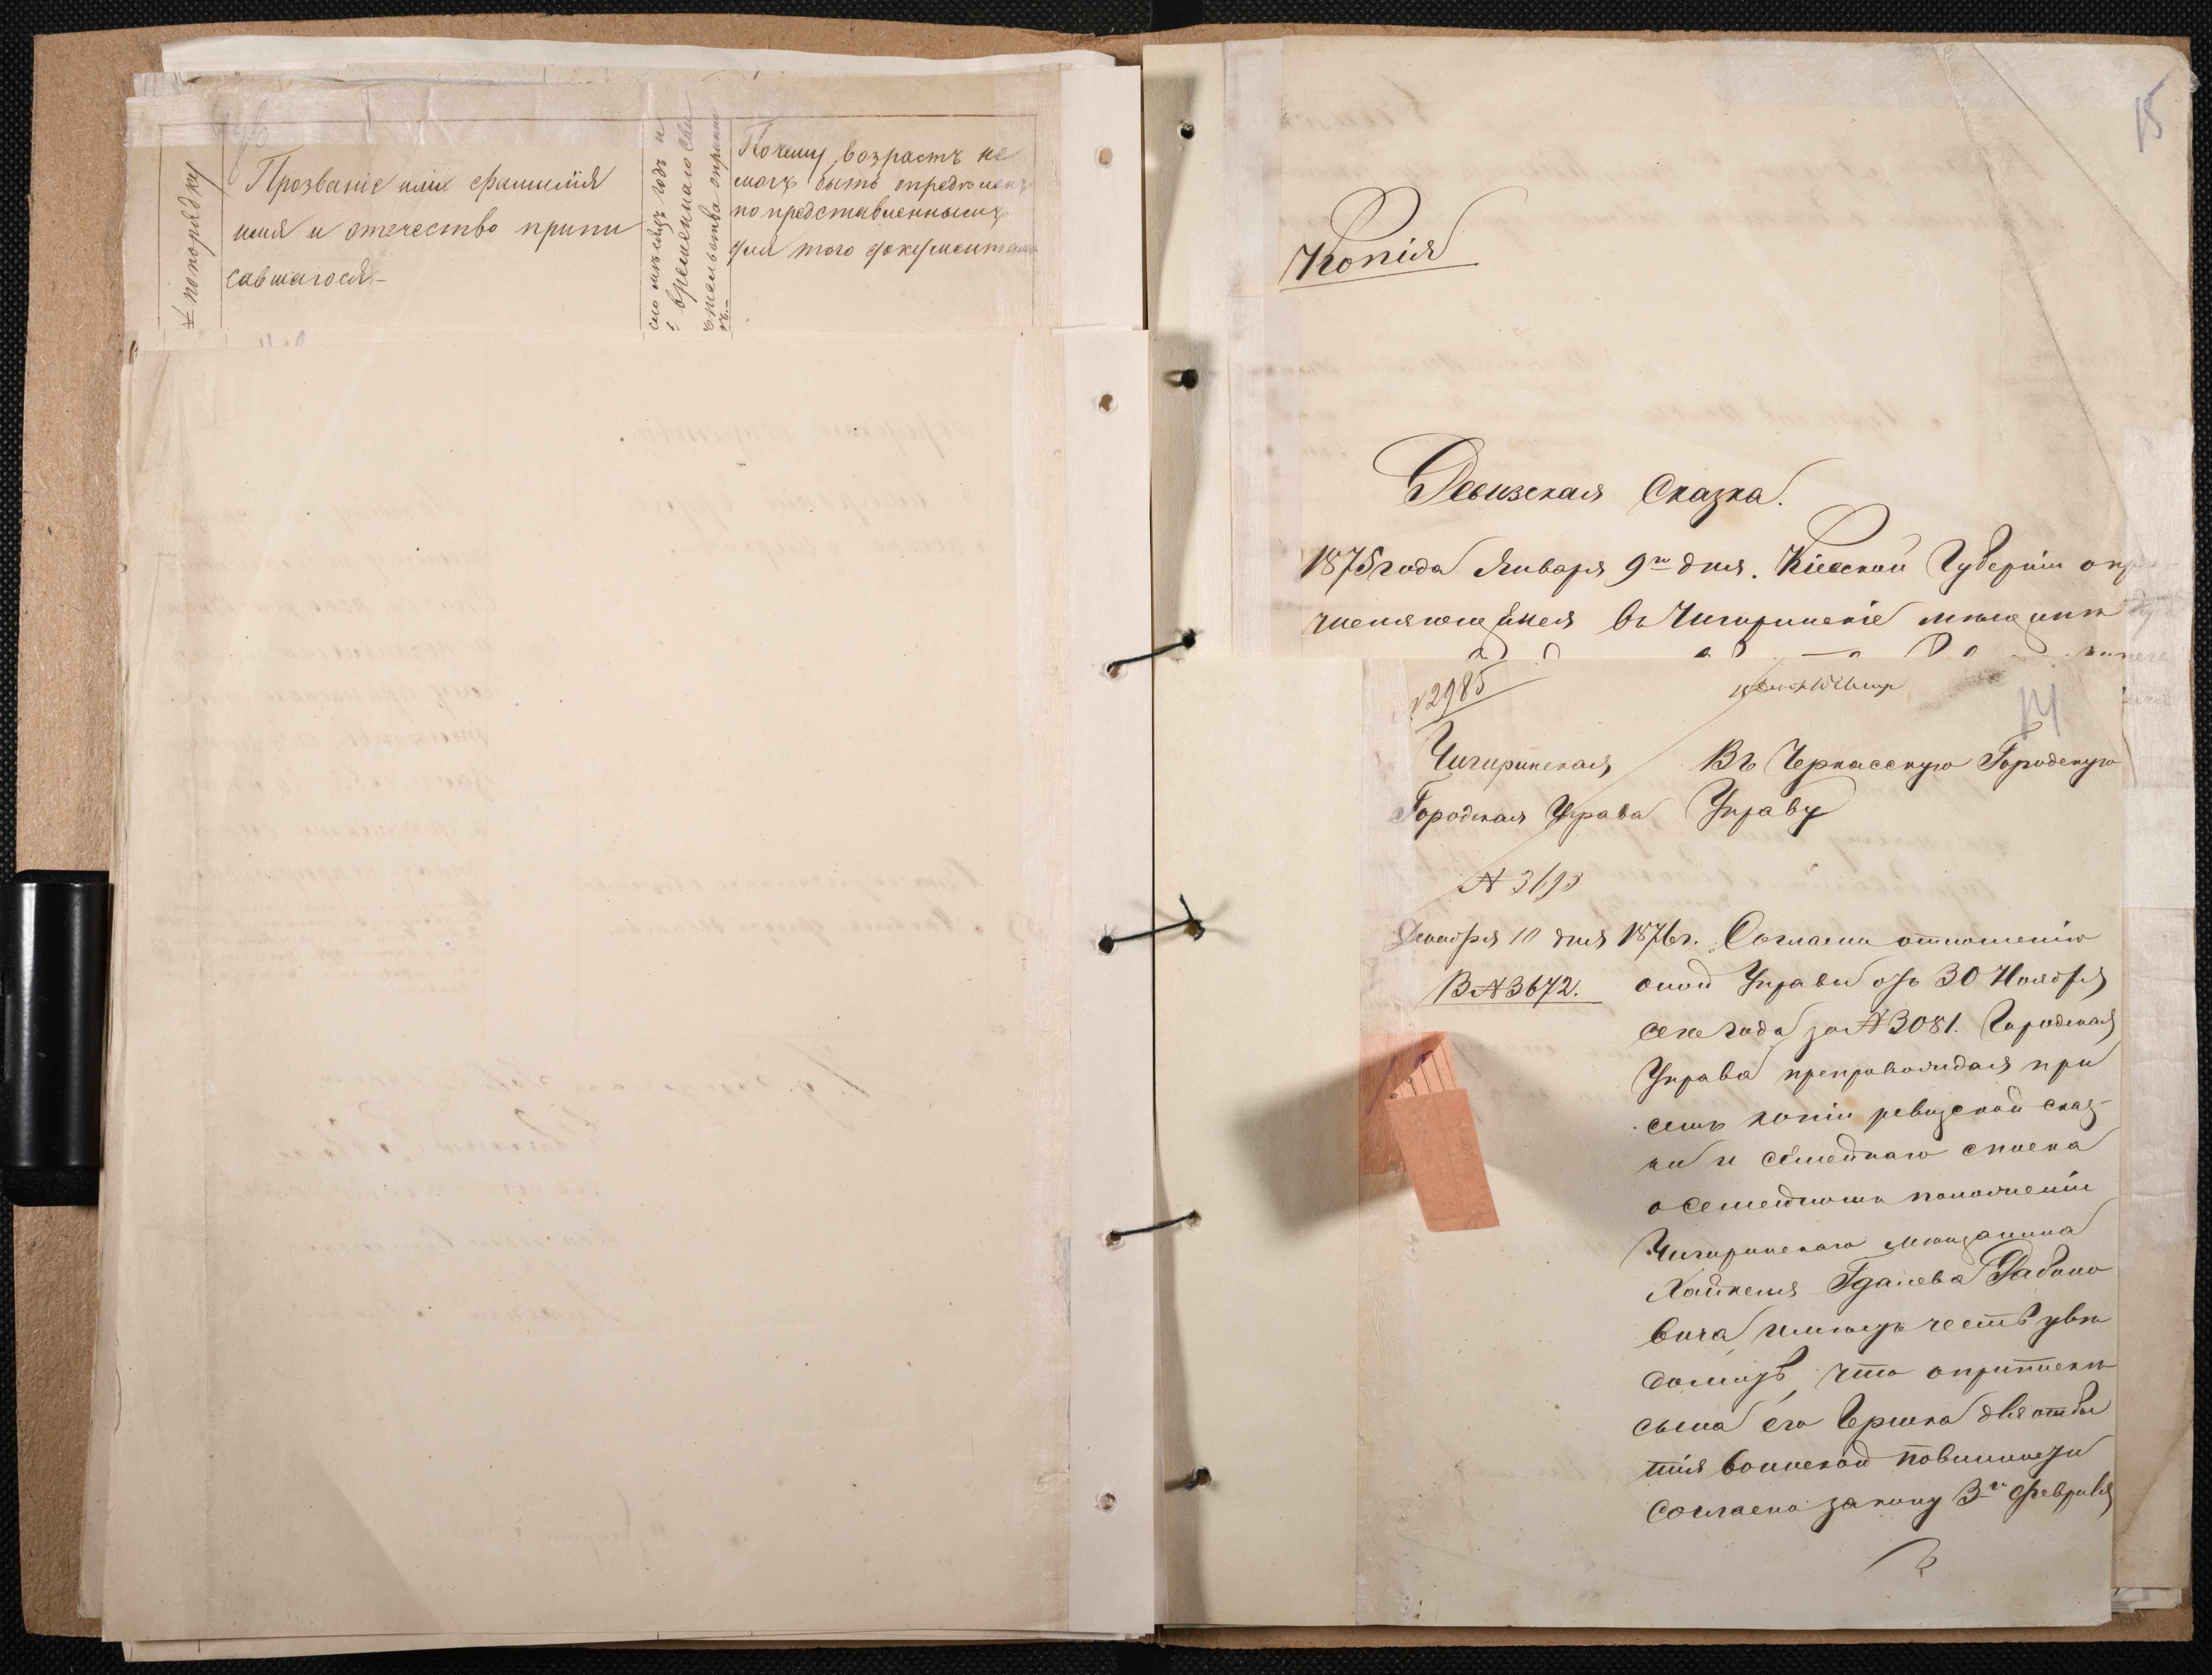 № по порядку
Прозваніе или фамилія
имя и отечество припи
савшагося
временнаго
Почему возрастъ не
могъ быть опредѣленъ
по представленнымъ
для того документамъ
15
Копія
Ревизская Сказка.
1875 года Января 9го дня. Кіевской Губерніи
въ Чигиринскіе мѣщане
№2985
14
Чигиринская
Городская Управа
№ 3693
Декабря 10 дня 1876 г.
В №3672.
Въ Черкасскую Городскую
Управу
Согласно отношенію
оной Управы отъ 30 Ноября
сего года за №3081. Городская
Управа препровождая при
семъ копіи ревизской сказ-
ки и семейнаго списка
о семейномъ положеніи
Чигиринскаго мѣщанина
Хайкеля Гдалева Рабино
вича имѣетъ честь увѣ
домить, что о припискѣ
сына его Гершка для отбы
тія воинской повинности
согласно закону 3го Февраля